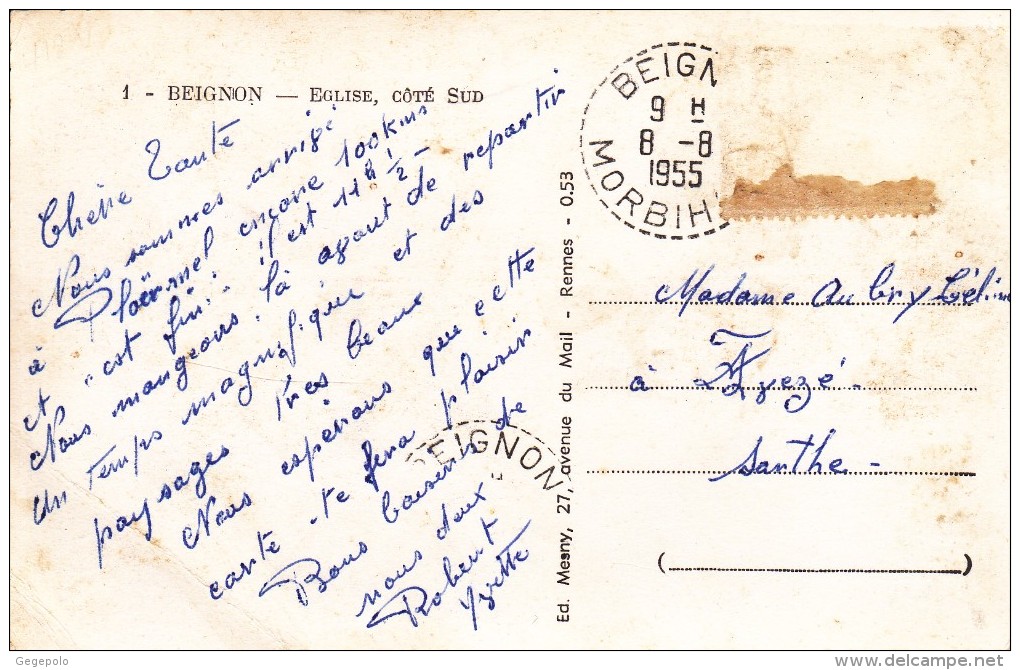 1 - BEIGNON — EGLISE, CÔTÉ SUD
Chère Tante
Nous sommes arrivé
à Ploërmel encore 100 kms
et c'est fini. il est 11 h 1/2 -
Nous mangeons là avant de repartir
Un Temps magnifique et des
paysages très beaux
Nous espérons que cette
carte te fera plaisir
Bons baisers de
nous deux
Robert
Yvette
BEIGNON
BEIGN
9 H
8 -8
1955
MORBIH
Ed. Mesny, 27, avenue du Mail - Rennes - 0.53
Madame Aubry Céline
à Avezé.
Sarthe -
(                )
Gegepolo
delcampe.net